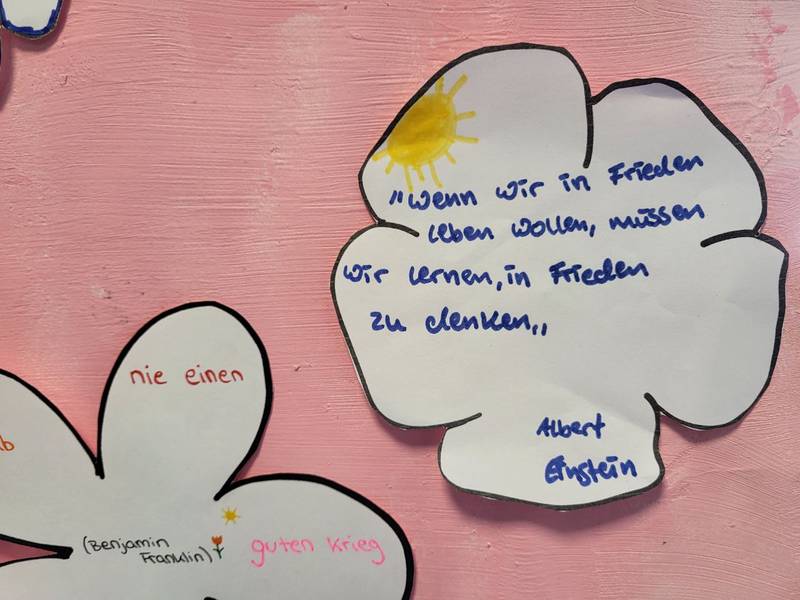 „Wenn wir in Frieden
leben wollen, müssen
wir lernen, in Frieden
zu denken„
Albert
Einstein
nie einen
(Benjamin
Franklin)
guten Krieg